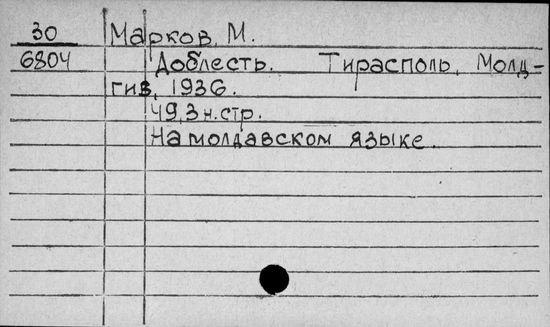 30 Марков, М.
6804 Доблесть. Тирасполь, Молд-
гиз, 1936.
49,3 н.стр.
На молдавском языке.